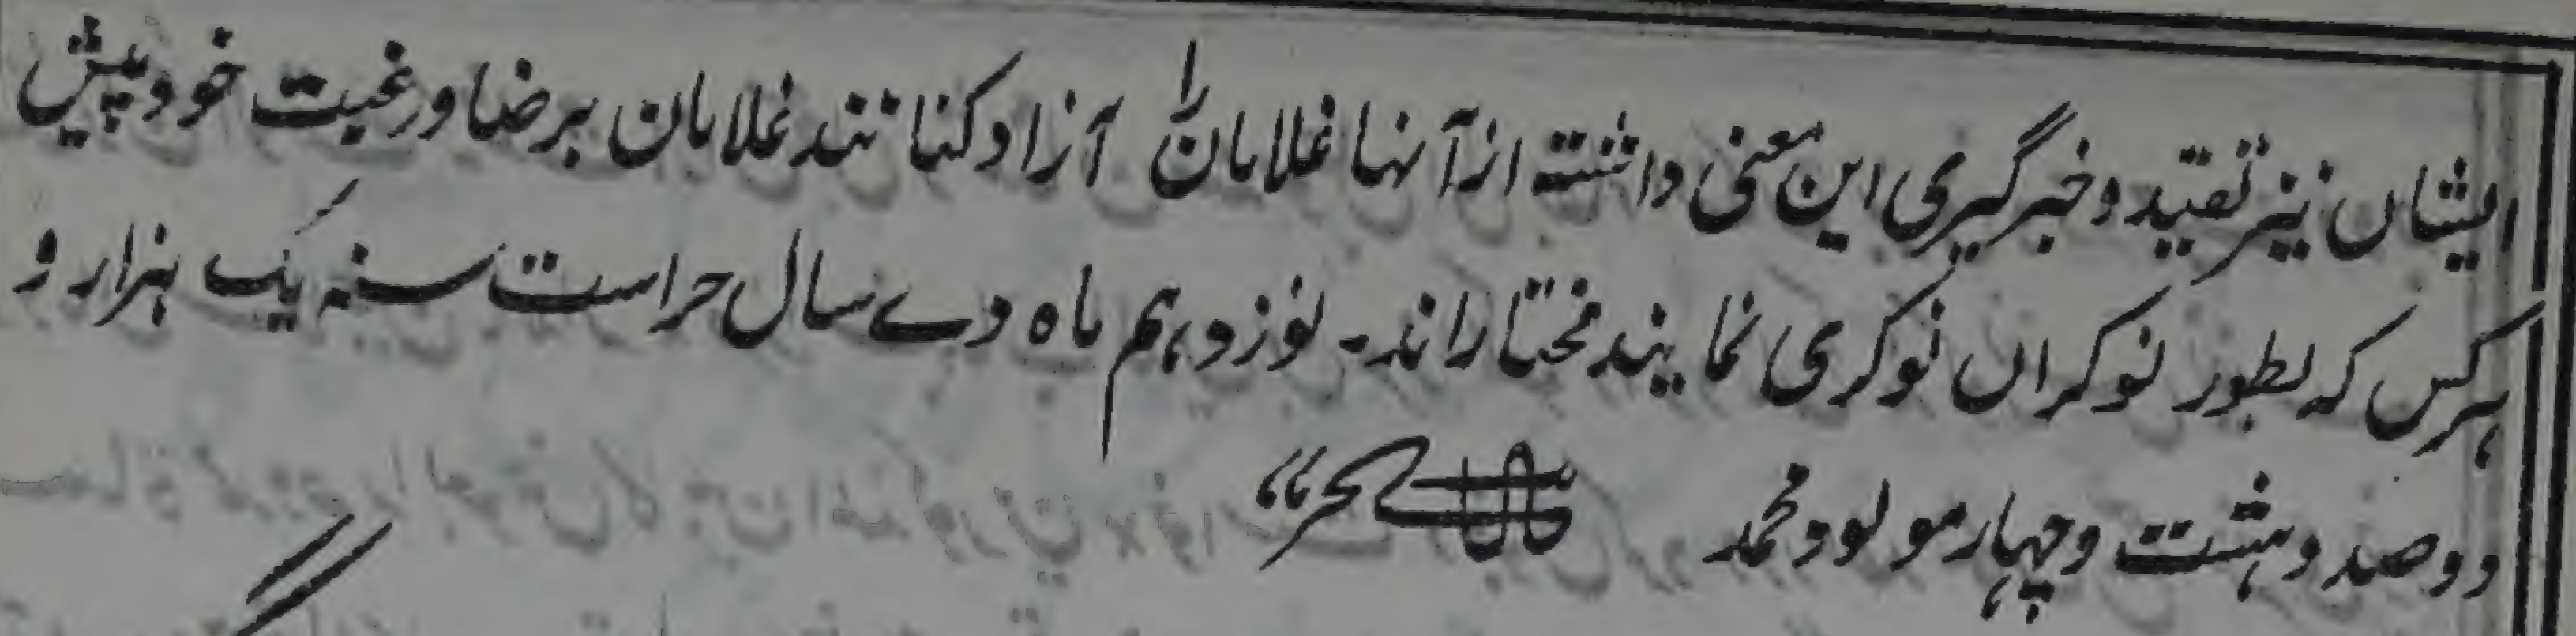 ایشان نیز تقید و خبرگیری این معنی داشته از آنها غلامان را آزاد کنانند غلامان برضا و رغبت خود پیش
هر کس که بطور نوکران نوکری نمایند مختاراند۔ نوزدہم ماہ دے سال حراست سنہ یک ہزار و
دوصد و ہشت و چہار مولود محمد